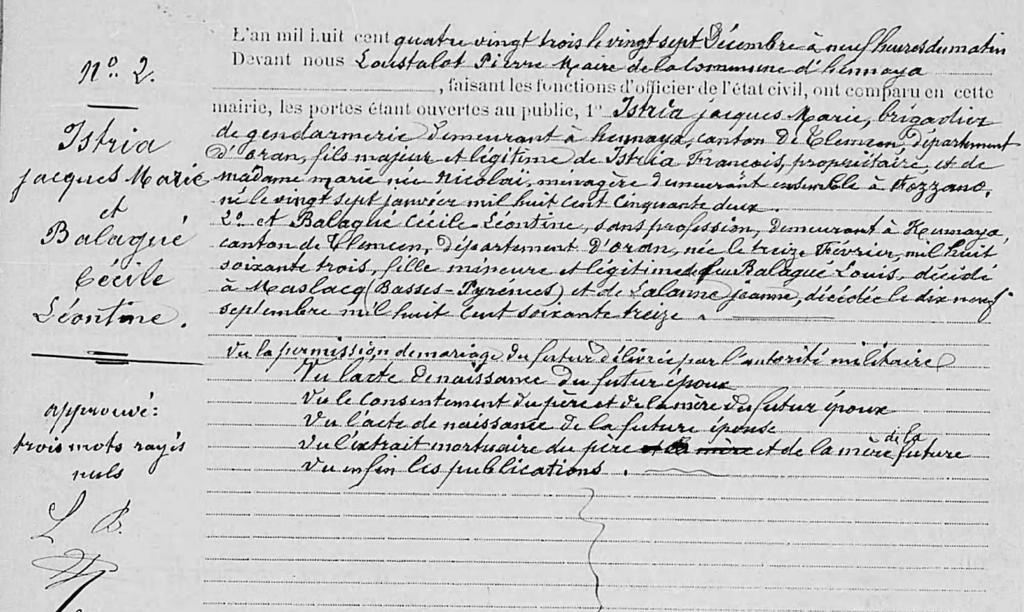 N° 2.
Istria
jacques Marie
et
Balagué
Cécile
Léontine.
approuvé:
trois mots rayés
nuls
L B.
L'an mil huit cent quatre vingt trois le vingt sept Décembre à neuf heures du matin
Devant nous Loustalot Pierre Maire de la Commune d'hennaya
, faisant les fonctions d'officier de l'état civil, ont comparu en cette
mairie, les portes étant ouvertes au public, 1° Istria jacques Marie, brigadier
de gendarmerie demeurant à hennaya, canton de Tlemcen, département
d'Oran, fils majeur et légitime de Istria François, propriétaire, et de
madame marie née Nicolaï, ménagère demeurant ensemble à Fozzano,
né le vingt sept janvier mil huit cent cinquante deux.
2° et Balagué Cécile Léontine, sans profession, demeurant à Hennaya,
canton de Tlemcen, département d'Oran, née le treize Février mil huit
soixante trois, fille mineure et légitime de feu Balagué Louis, décédé
à Maslacq (Basses-Pyrénées) et de Lalanne jeanne, décédée le dix neuf
septembre mil huit cent soixante treize.
Vu la permission de mariage du futur délivrée par l'autorité militaire
Vu l'acte de naissance du futur époux
Vu le consentement du père et de la mère du futur époux
Vu l'acte de naissance de la future épouse
Vu l'extrait mortuaire du père et la mère et de la mère de la future
Vu enfin les publications.